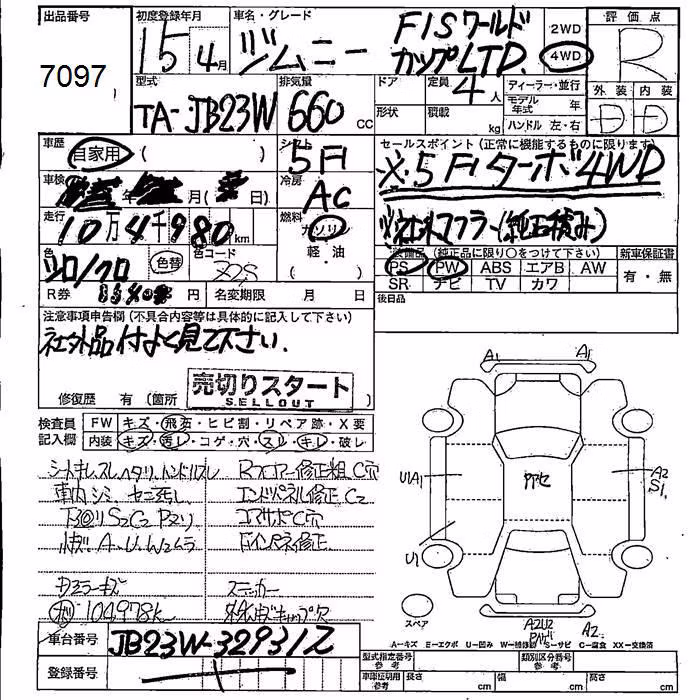 出品番号
7097
初度登録年月
15 4月
車名・グレード
ジムニー
FISワールド
カップLTD.
2WD
4WD
評価点
R
外装 内装
D D
型式
TA-JB23W
排気量
660 cc
ドア
形状
定員
4人
積載
kg
ディーラー・並行
モデル年式 年
ハンドル 左・右
車歴
自家用 ( )
シフト
5F1
セールスポイント(正常に機能するものに限ります)
※5F1ターボ4WD
※社外マフラー(純正積み)
車検
年 月( 日)
冷房
AC
走行
10万4千980km
燃料
ガソリン
軽・油
( )
色
シロ/クロ
色替
色コード
装備品(純正品に限り○をつけて下さい)
PS PW ABS エアB AW
SR ナビ TV カワ
新車保証書
有・無
R券 円
名変期限 月 日
後日品
注意事項申告欄(不具合内容等は具体的に記入して下さい)
社外品付よく見て下さい.
売切りスタート
SELLOUT
修復歴 有(箇所 )
検査員
記入欄
FW キズ・飛石・ヒビ割・リペア跡・X要
内装 キズ・汚レ・コゲ・穴・スレ・キレ・破レ
シートキレスレヘタリ,ハンドルスレ
Rフロアー修正粗C穴
車内シミ
エンドパネル修正C2
コアサポC穴
小キズA.U.W2ムラ
Fインパネ修正
ドアミラーキズ
ステッカー
104978k
キャップ欠
A1
A1
U1A1
A2
S1
U1
スペア
A2U2
A2
A=キズ E=エクボ U=凹み W=補修跡 S=サビ C=腐食 XX=交換済
車台番号
JB23W-329312
登録番号
型式指定番号
参考
類別区分番号
参考
車庫証明用
参考
長さ cm
幅 cm
高さ cm